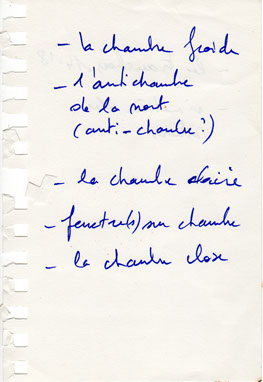 - la chambre froide
- l'antichambre
de la mort
(anti-chambre?)
- la chambre
- fenêtre(s) sur chambre
- la chambre close